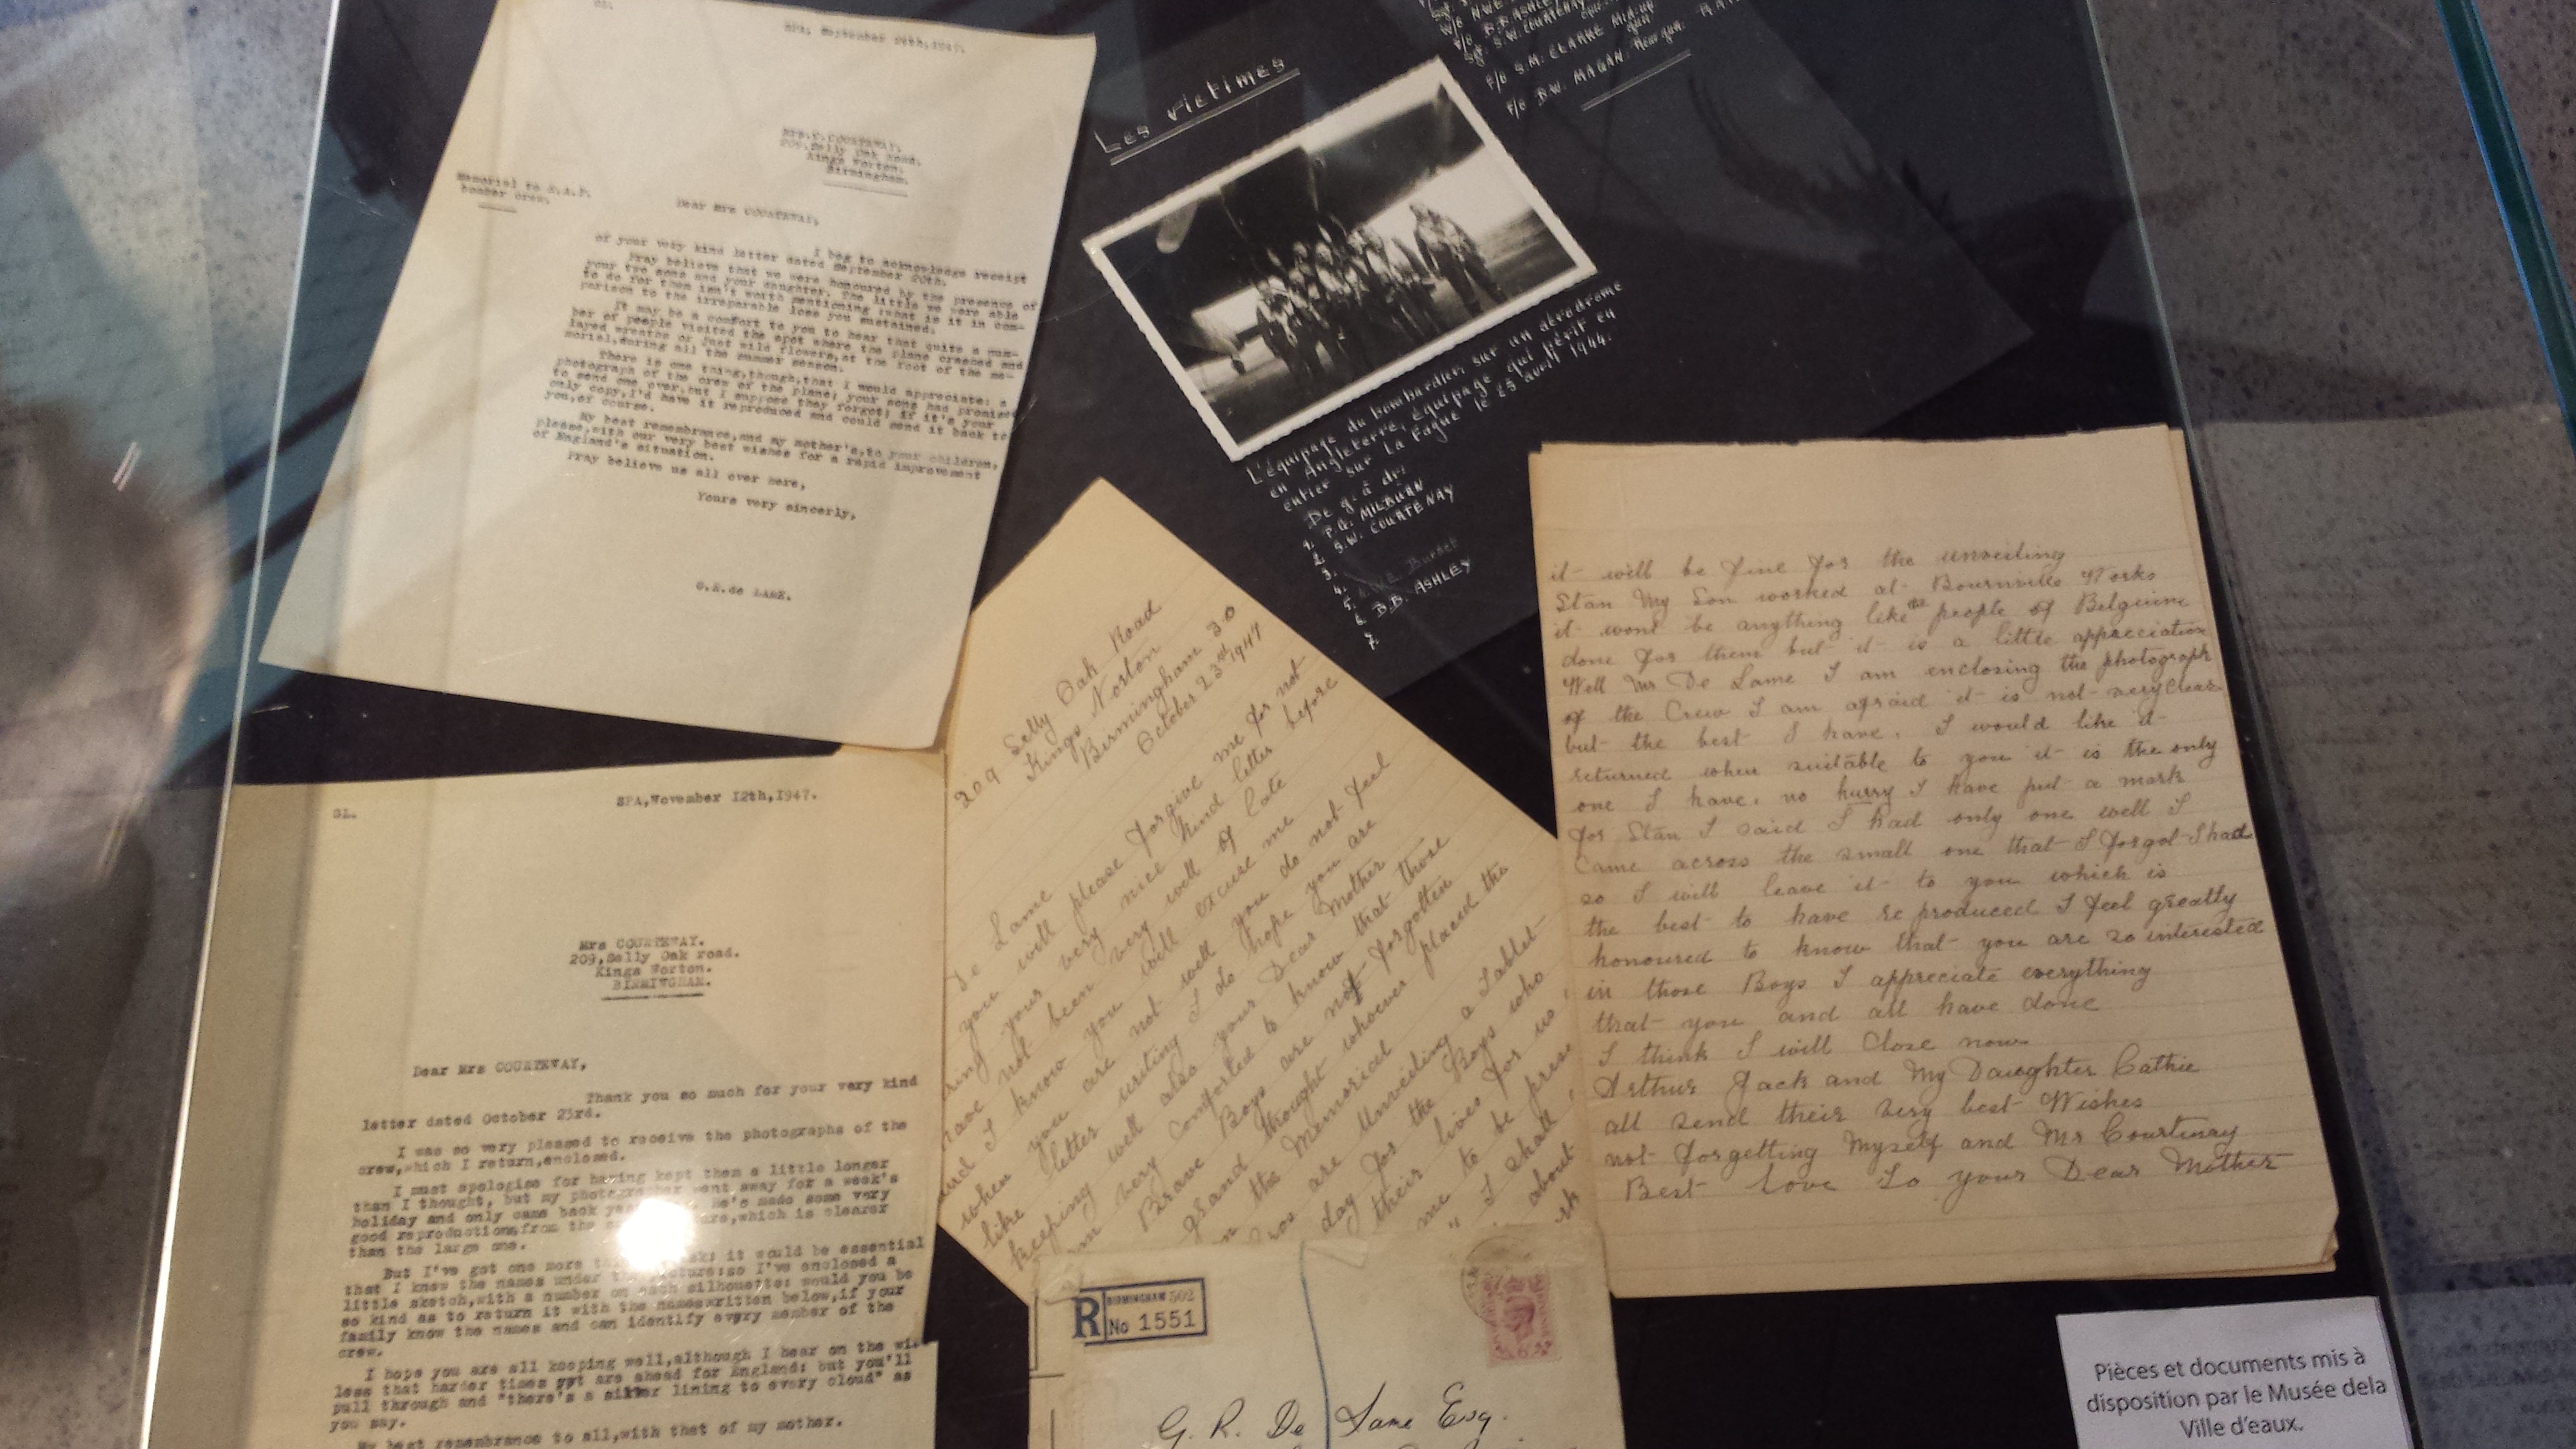 SPA, September 24th, 1947.
Mrs. C. COURTENAY.
209, Selly Oak Road.
Kings Norton.
Birmingham.
Memorial to R.A.F.
bomber crew.
Dear Mrs COURTENAY,
I beg to acknowledge receipt
of your very kind letter dated September 20th.
Pray believe that we were honoured by the presence of
your two sons and your daughter. The little we were able
to do for them isn't worth mentioning: what is it in com-
parison to the irreparable loss you sustained:
It may be a comfort to you to hear that quite a num-
ber of people visited the spot where the plane crashed and
layed wreaths or just wild flowers, at the foot of the me-
morial, during all the summer season.
There is one thing, though, that I would appreciate: a
photograph of the crew of the plane; your sons had promised
to send one over, but I suppose they forgot; if it's your
only copy, I'd have it reproduced and could send it back to
you, of course.
My best remembrance, and my mother's, to your children,
please, with our very best wishes for a rapid improvement
of England's situation.
Pray believe us all over here,
Yours very sincerely,
G.R. de LAME.
B.B. ASHLEY
S.W. COURTENAY
F/O S.M. CLARKE Mid. up. gun
F/O B.W. MAGAN. Rear gun.
Les victimes
L'équipage du bombardier, sur un aérodrome
en Angleterre, équipage qui périt en
entier sur La Fagne le 25 avril 1944.
De g. à dr:
1. P.G. MILBURN
2. S.W. COURTENAY
3.
4.
5.
6. B.B. ASHLEY
7.
209 Selly Oak Road
Kings Norton
Birmingham 30
October 23rd 1947
De Lame
you will please forgive me for not
your very nice kind letter before
not been very well of late
I know you will excuse me
when you are not well you do not feel
like letter writing I do hope you are
keeping well also your Dear Mother
very comforted to know that those
Brave Boys are not forgotten
grand thought whoever placed the
the Memorial
are Unveiling a Tablet
day for the Boys who
their lives for us
me to be
I shall
about
it will be fine for the unveiling
Stan My Son worked at Bournville Works
it wont be anything like the people of Belguim
done for them but it is a little appreciation
Well Mr De Lame I am enclosing the photograph
of the Crew I am afraid it is not very clear
but the best I have, I would like it
returned when suitable to you it is the only
one I have, no hurry I have put a mark
for Stan I said I had only one well I
came across the small one that I forgot I had
so I will leave it to you which is
the best to have reproduced I feel greatly
honoured to know that you are so interested
in those Boys I appreciate everything
that you and all have done
I think I will close now
Arthur Jack and My Daughter Cathie
all send their very best Wishes
not forgetting Myself and Mr Courtenay
Best Love To your Dear Mother
SPA, November 12th, 1947.
GL.
Mrs COURTENAY.
209, Selly Oak road.
Kings Norton.
BIRMINGHAM.
Dear Mrs COURTENAY,
Thank you so much for your very kind
letter dated October 23rd.
I was so very pleased to receive the photographs of the
crew, which I return, enclosed.
I must apologise for having kept them a little longer
than I thought, but my photographer went away for a week's
holiday and only came back He's made some very
good reproductions, from the which is clearer
than the large one.
But I've got one more it would be essential
that I knew the names under the picture: so I've enclosed a
little sketch, with a number on each silhouette: would you be
so kind as to return it with the names written below, if your
family know the names and can identify every member of the
crew.
I hope you are all keeping well, although I hear on the wi-
less that harder times yet are ahead for England: but you'll
pull through and "there's a silver lining to every cloud" as
you say.
My best remembrance to all, with that of my mother.
R BIRMINGHAM 502
No 1551
G. R. De Lame Esq.
Pièces et documents mis à
disposition par le Musée dela
Ville d'eaux.